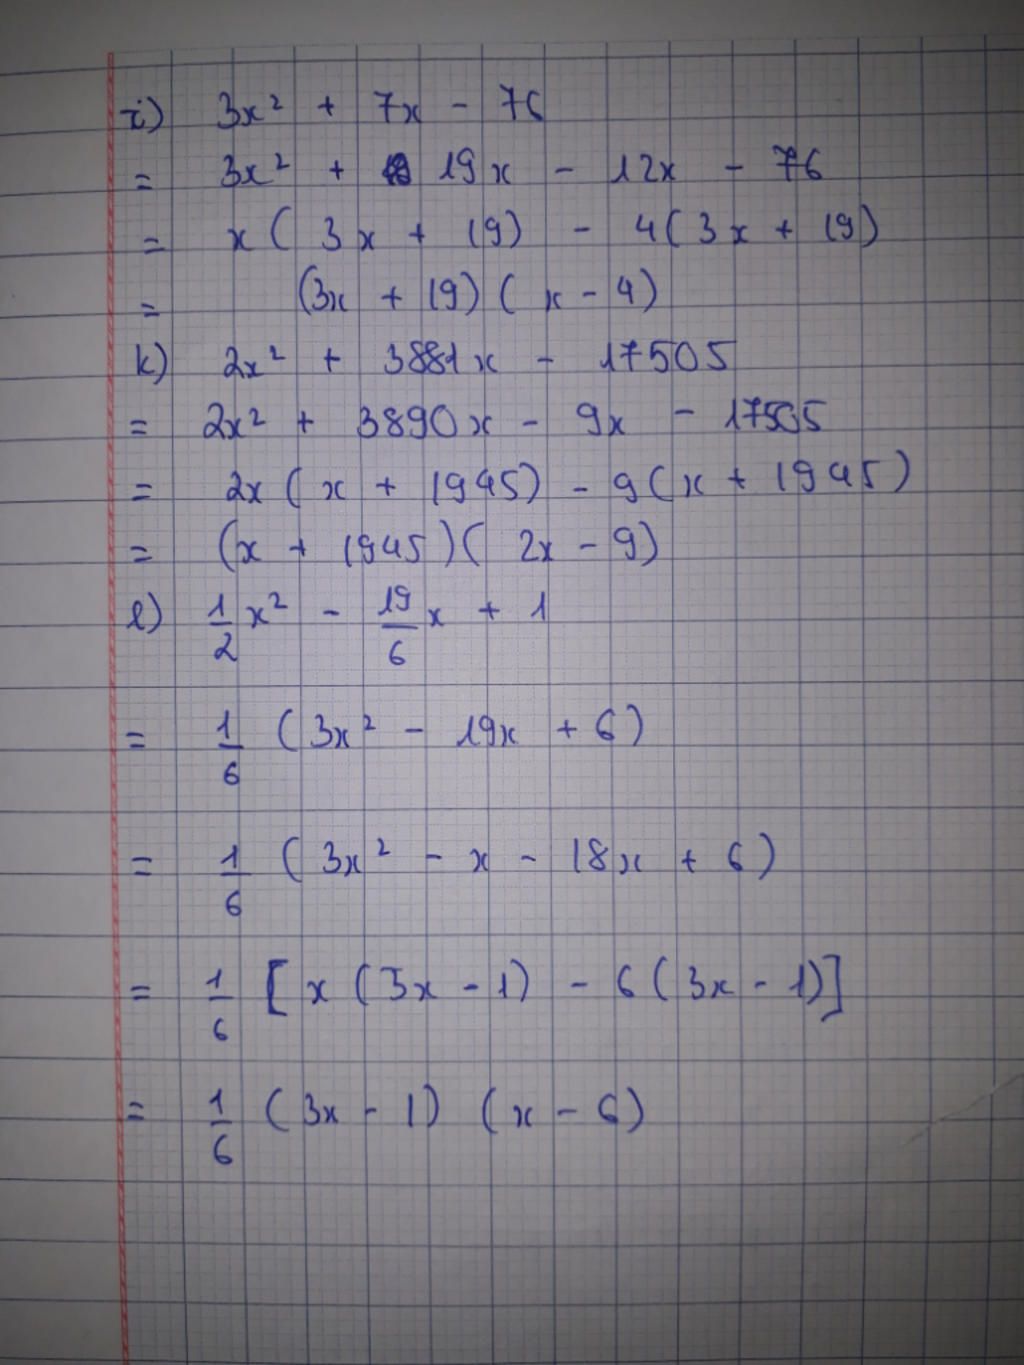 i) 3x² + 7x - 76
= 3x² + 19x - 12x - 76
= x( 3x + 19) - 4( 3x + 19)
= (3x + 19) ( x - 4)
k) 2x² + 3881x - 17505
= 2x² + 3890x - 9x - 17505
= 2x ( x + 1945) - 9 ( x + 1945)
= (x + 1945) ( 2x - 9)
l) 1/2 x² - 19/6 x + 1
= 1/6 ( 3x² - 19x + 6)
= 1/6 ( 3x² - x - 18x + 6)
= 1/6 [ x ( 3x - 1) - 6 ( 3x - 1)]
= 1/6 ( 3x - 1) (x - 6)